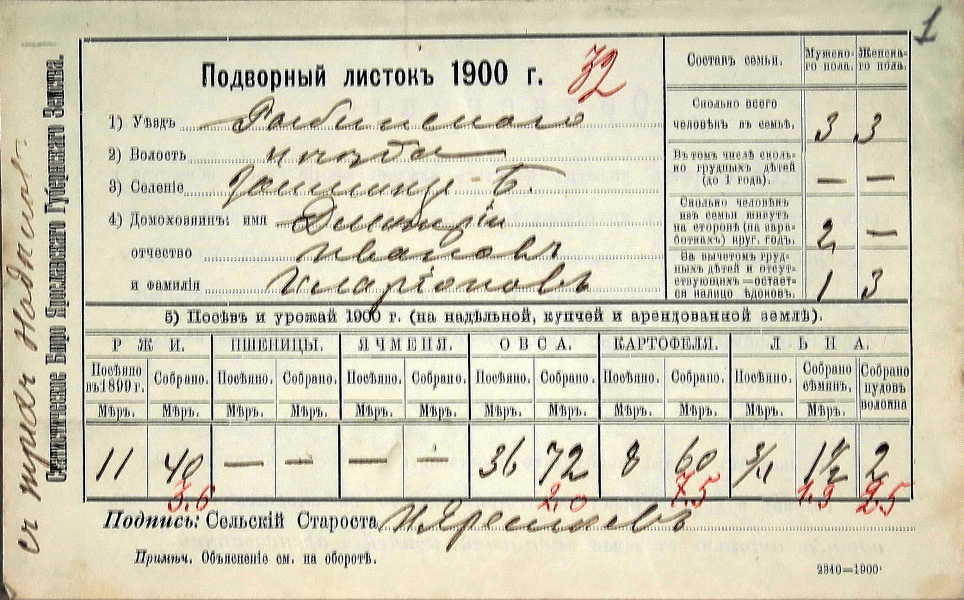 1
Подворный листокъ 1900 г. 32
1) Уѣздъ Рыбинскаго
2) Волость
3) Селеніе Б.
4) Домохозяинъ: имя Дмитрій
отчество Ивановъ
и фамилія Иларіоновъ
Составъ семьи. Мужско-го пола. Женска-го пола.
Сколько всего человѣкъ въ семьѣ. 3 3
Въ томъ числѣ сколь-ко грудныхъ дѣтей (до 1 года). — —
Сколько человѣкъ изъ семьи живутъ на сторонѣ (на зара-боткахъ) круг. годъ. 2 —
За вычетомъ груд-ныхъ дѣтей и отсут-ствующихъ—остает-ся налицо ѣдоковъ. 1 3
5) Посѣвъ и урожай 1900 г. (на надѣльной, купчей и арендованной землѣ).
РЖИ. ПШЕНИЦЫ. ЯЧМЕНЯ. ОВСА. КАРТОФЕЛЯ. ЛЬНА.
Посѣяно въ 1899 г. Собрано. Посѣяно. Собрано. Посѣяно. Собрано. Посѣяно. Собрано. Посѣяно. Собрано. Посѣяно. Собрано сѣмянъ. Собрано пудовъ волокна
Мѣръ. Мѣръ. Мѣръ. Мѣръ. Мѣръ. Мѣръ. Мѣръ. Мѣръ. Мѣръ. Мѣръ. Мѣръ. Мѣръ.
11 40 — — — — 36 72 8 60 3/4 1 1/2 2
3.6 2.0 7.5 1.9 2.5
Подпись: Сельскій Староста
Примѣч. Объясненіе см. на оборотѣ.
2340—1900
Статистическое Бюро Ярославскаго Губернскаго Земства.